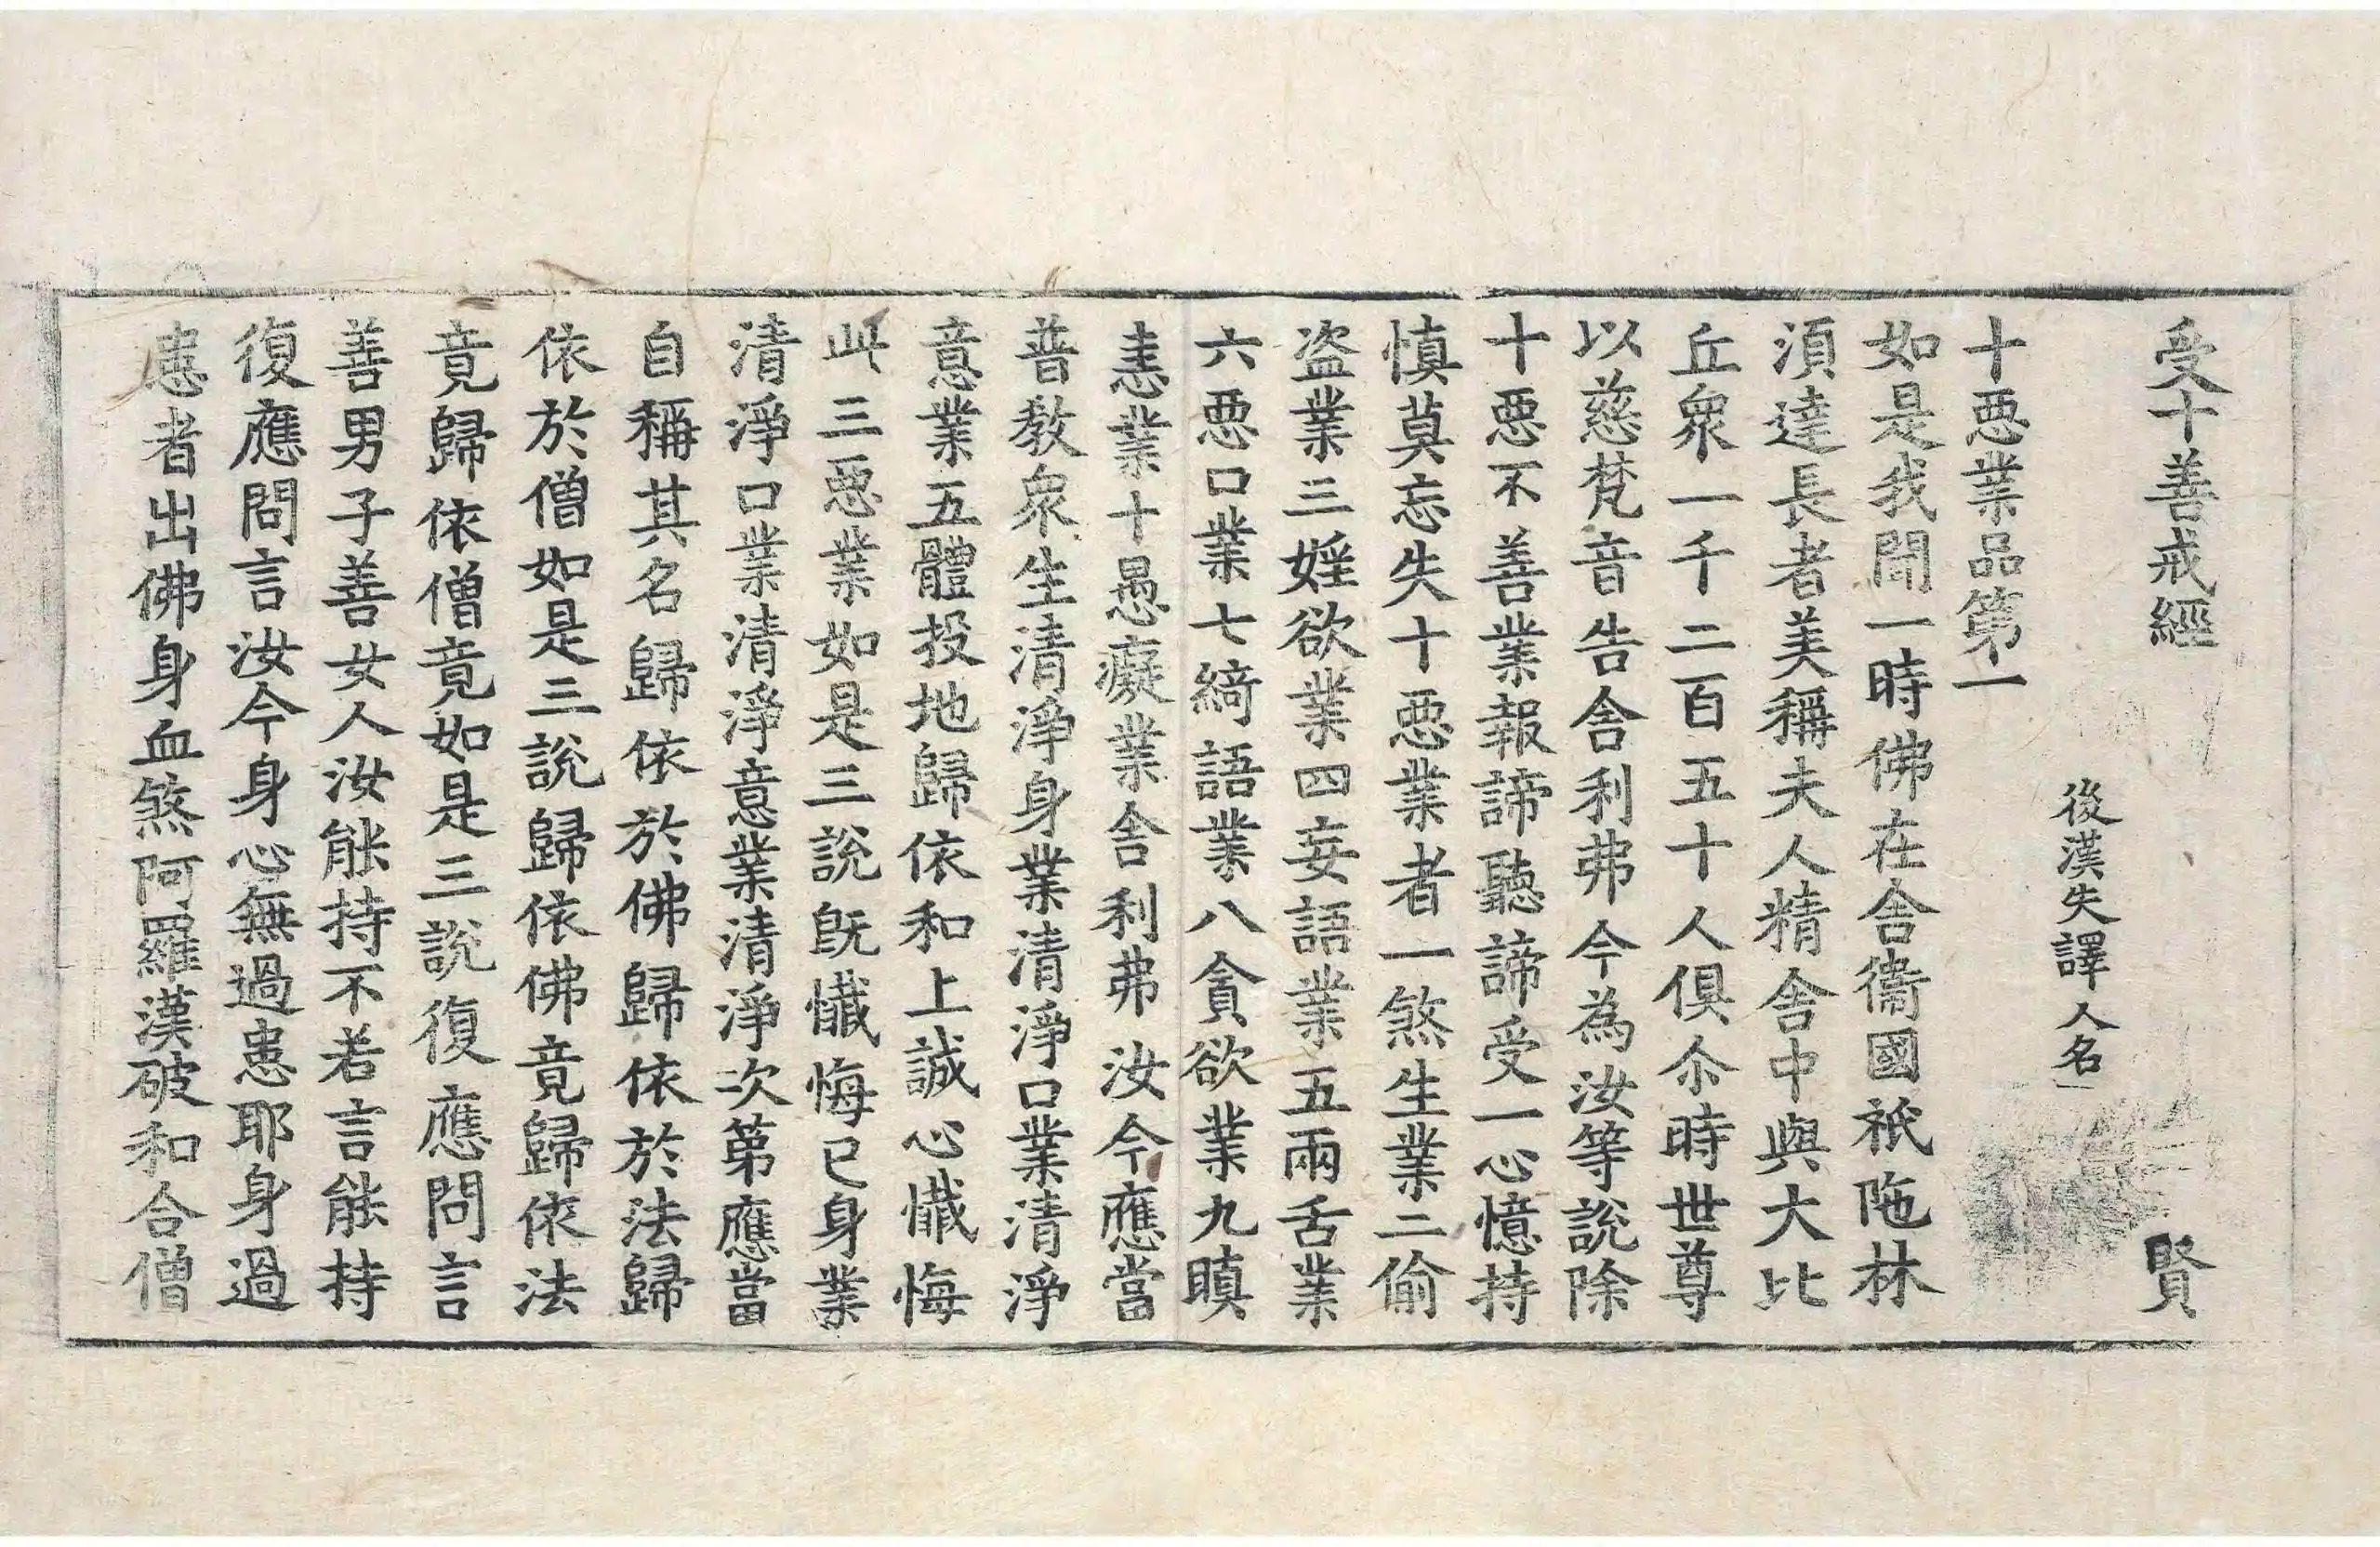 受十善戒經 賢
後漢失譯人名
十惡業品第一
如是我聞一時佛在舍衞國祇陁林
湏達長者美稱夫人精舍中與大比
丘衆一千二百五十人俱尒時世尊
以慈梵音告舍利弗今為汝等說除
十惡不善業報諦聽諦受一心憶持
慎莫忘失十惡業者一煞生業二偷
盗業三婬欲業四妄語業五兩舌業
六惡口業七綺語業八貪欲業九瞋
恚業十愚癡業舍利弗汝今應當
普教衆生清淨身業清淨口業清淨
意業五體投地歸依和上誠心懺悔
此三惡業如是三說旣懺悔已身業
清淨口業清淨意業清淨次第應當
自稱其名歸依於佛歸依於法歸
依於僧如是三說歸依佛竟歸依法
竟歸依僧竟如是三說復應問言
善男子善女人汝能持不若言能持
復應問言汝今身心無過患耶身過
患者出佛身血煞阿羅漢破和合僧